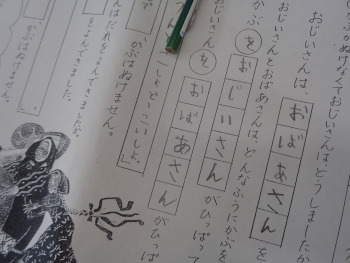 かぶがぬけなくておじいさんはどうしましたか
おじいさんは、おばあさんを
おじいさんとおばあさんは、どんなふうにかぶを
かぶをおじいさんがひっぱって
おじいさんをおばあさんがひっぱ
しょ、どっこいしょ。」
かぶはぬけません。
んはだれをよんできましたか。
をよんできました。
かぶはぬけません。